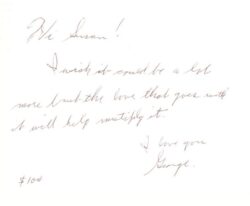 Hi Susan!
I wish it could be a lot
more but the love that goes with
it will help multiply it.
I love you
George.